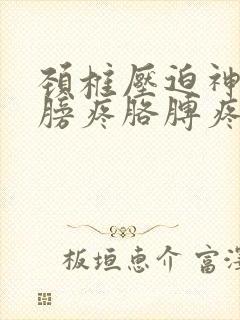 頚椎壓迫神
膀疼胳膊疼
板垣恵介 富深